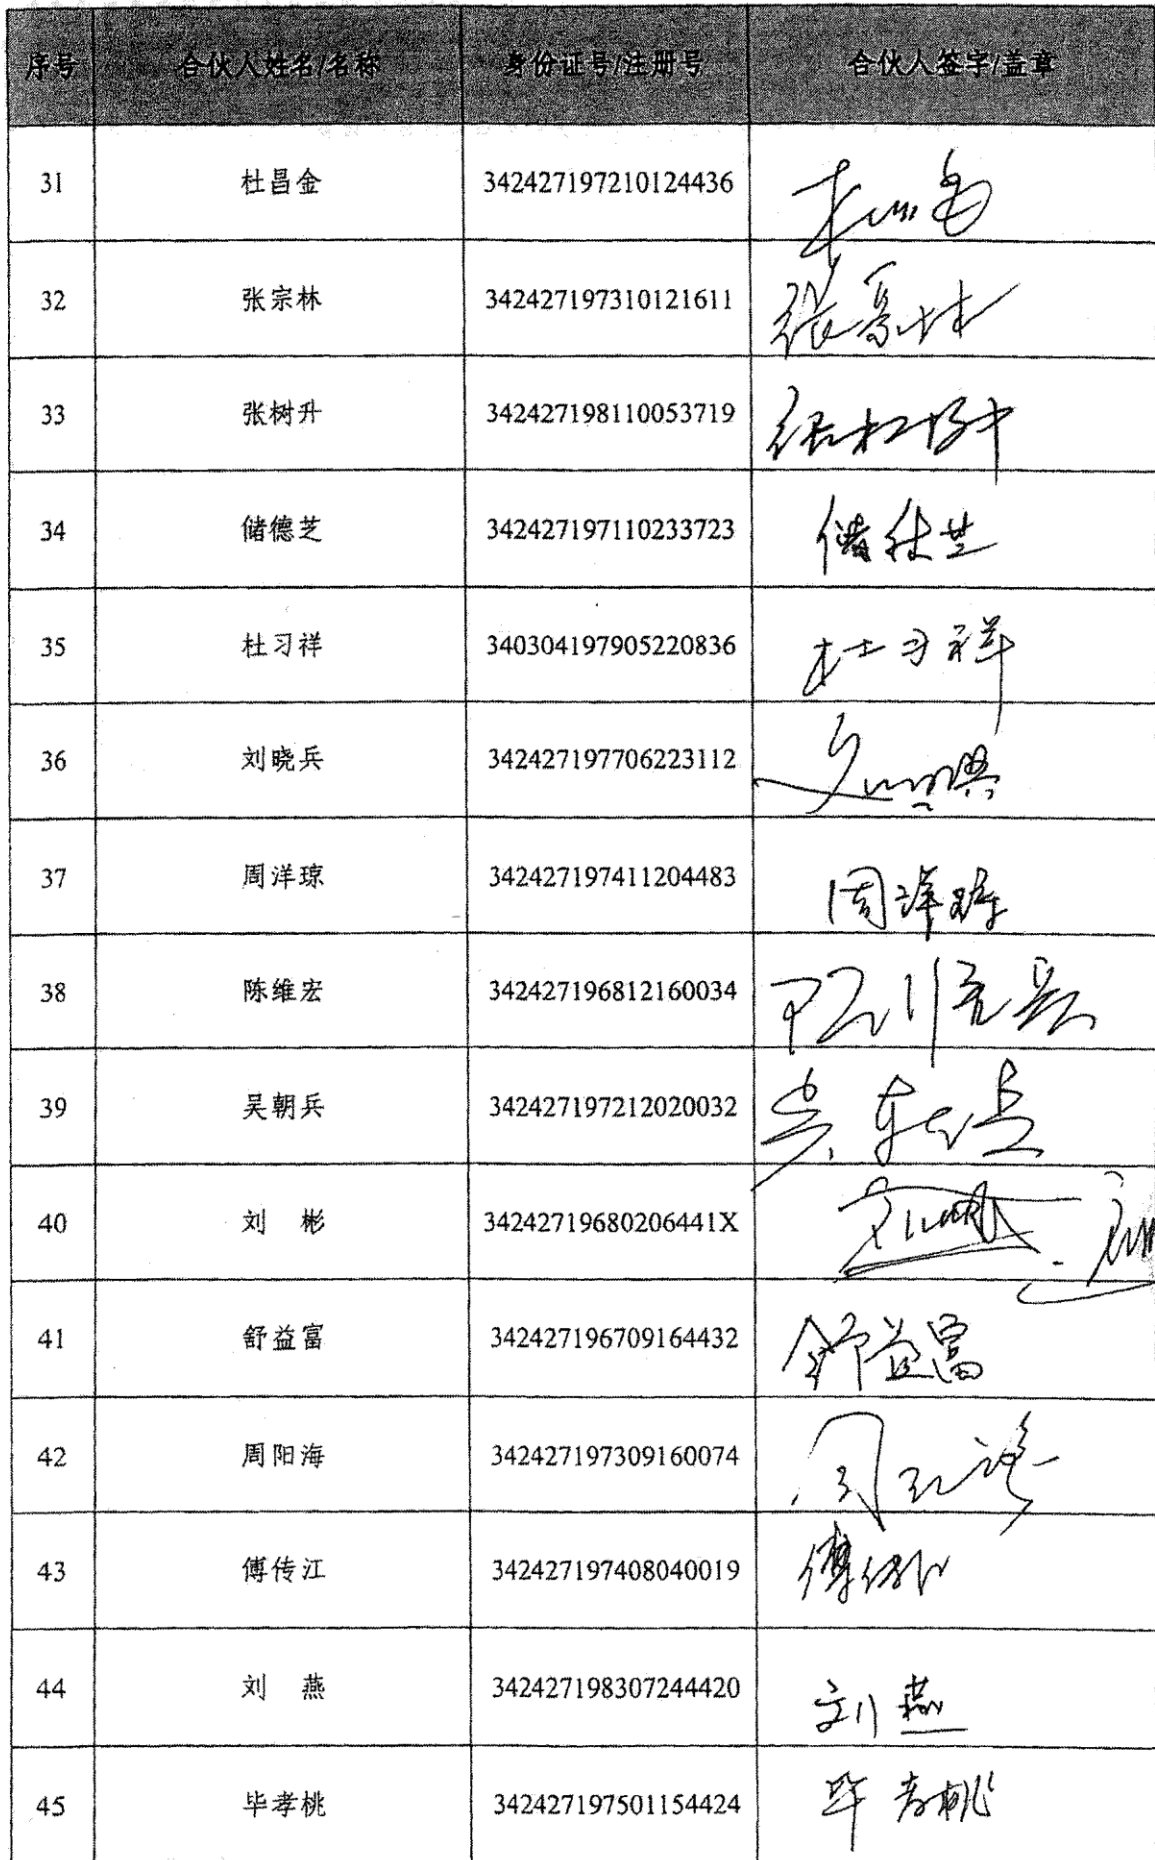 序号 合伙人姓名/名称 身份证号/注册号 合伙人签字/盖章
31 杜昌金 342427197210124436
32 张宗林 342427197310121611 张宗林
33 张树升 342427198110053719 张树升
34 储德芝 342427197110233723 储德芝
35 杜习祥 340304197905220836 杜习祥
36 刘晓兵 342427197706223112
37 周洋琼 342427197411204483 周洋琼
38 陈维宏 342427196812160034
39 吴朝兵 342427197212020032 吴朝兵
40 刘 彬 34242719680206441X
41 舒益富 342427196709164432 舒益富
42 周阳海 342427197309160074 周阳海
43 傅传江 342427197408040019 傅传江
44 刘 燕 342427198307244420 刘燕
45 毕孝桃 342427197501154424 毕孝桃